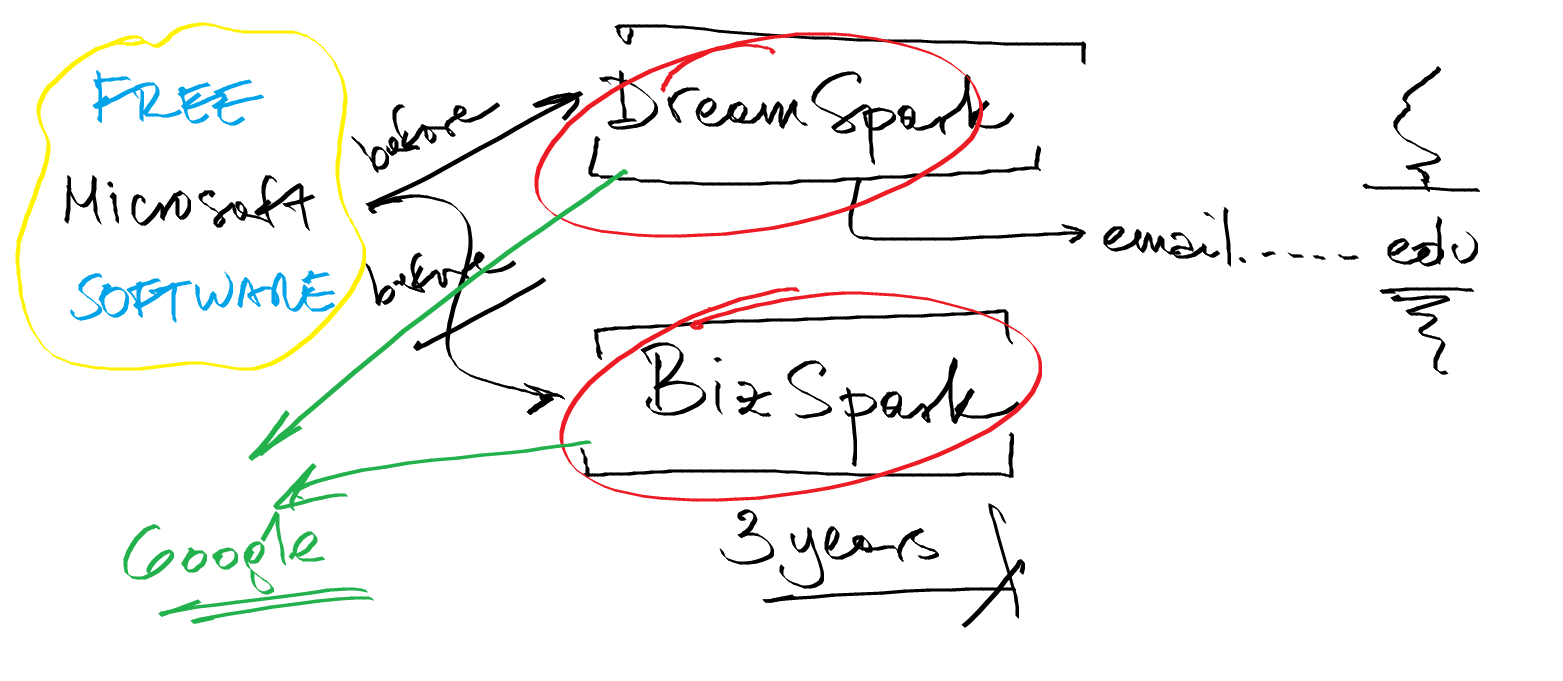 FREE
Microsoft
SOFTWARE
before
DreamSpark
email......edu
before
BizSpark
3 years
Google